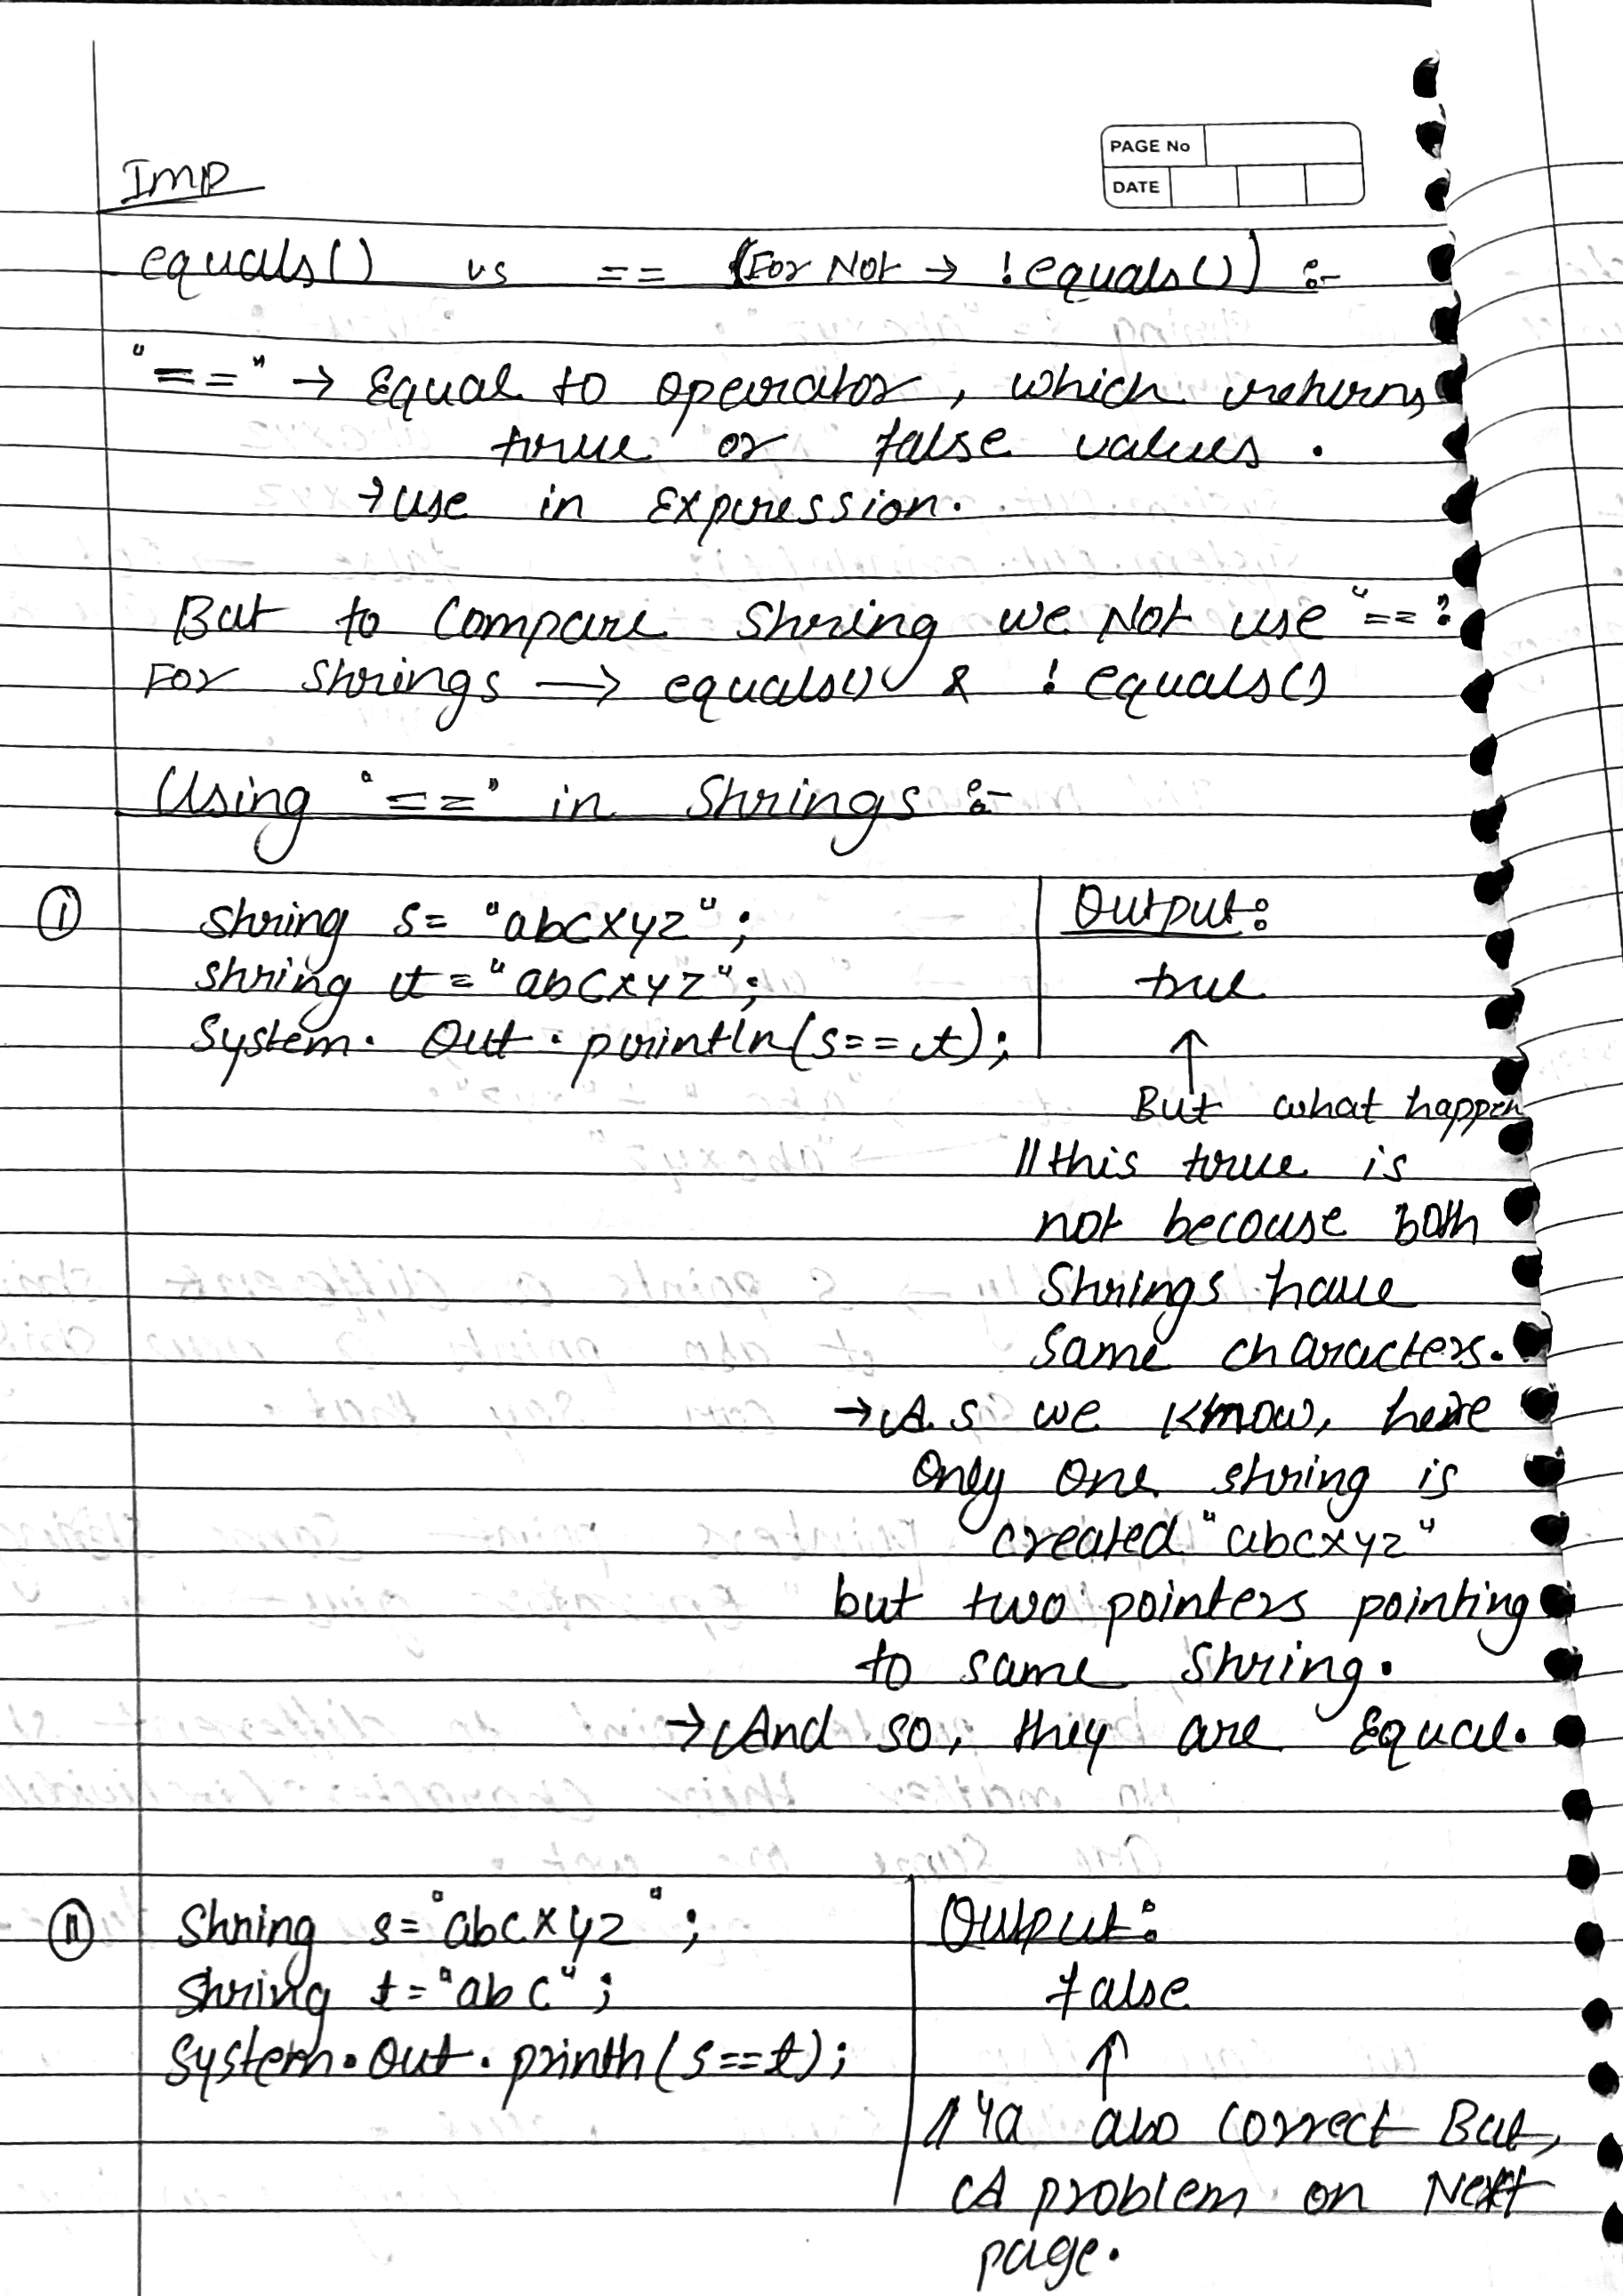 PAGE No
DATE
Imp
equals() vs == (For Not → !equals()) :-
"==" → Equal to operator, which returns
true or false values.
→ use in Expression.
But to Compare String we Not use "=="
For Strings → equals() & !equals()
Using "==" in Strings :-
(i) String s = "abcxyz";
String t = "abcxyz";
System. Out. println(s==t);
Output:
true
↑
But what happen
// this true is
not becouse both
Strings have
same characters.
→ As we know, here
Only one string is
created "abcxyz"
but two pointers pointing
to same String.
→ And so, they are Equal.
(ii) String s = "abcxyz";
String t = "abc";
System. Out. println(s==t);
Output:
false
↑
// also correct But,
A problem on Next
page.